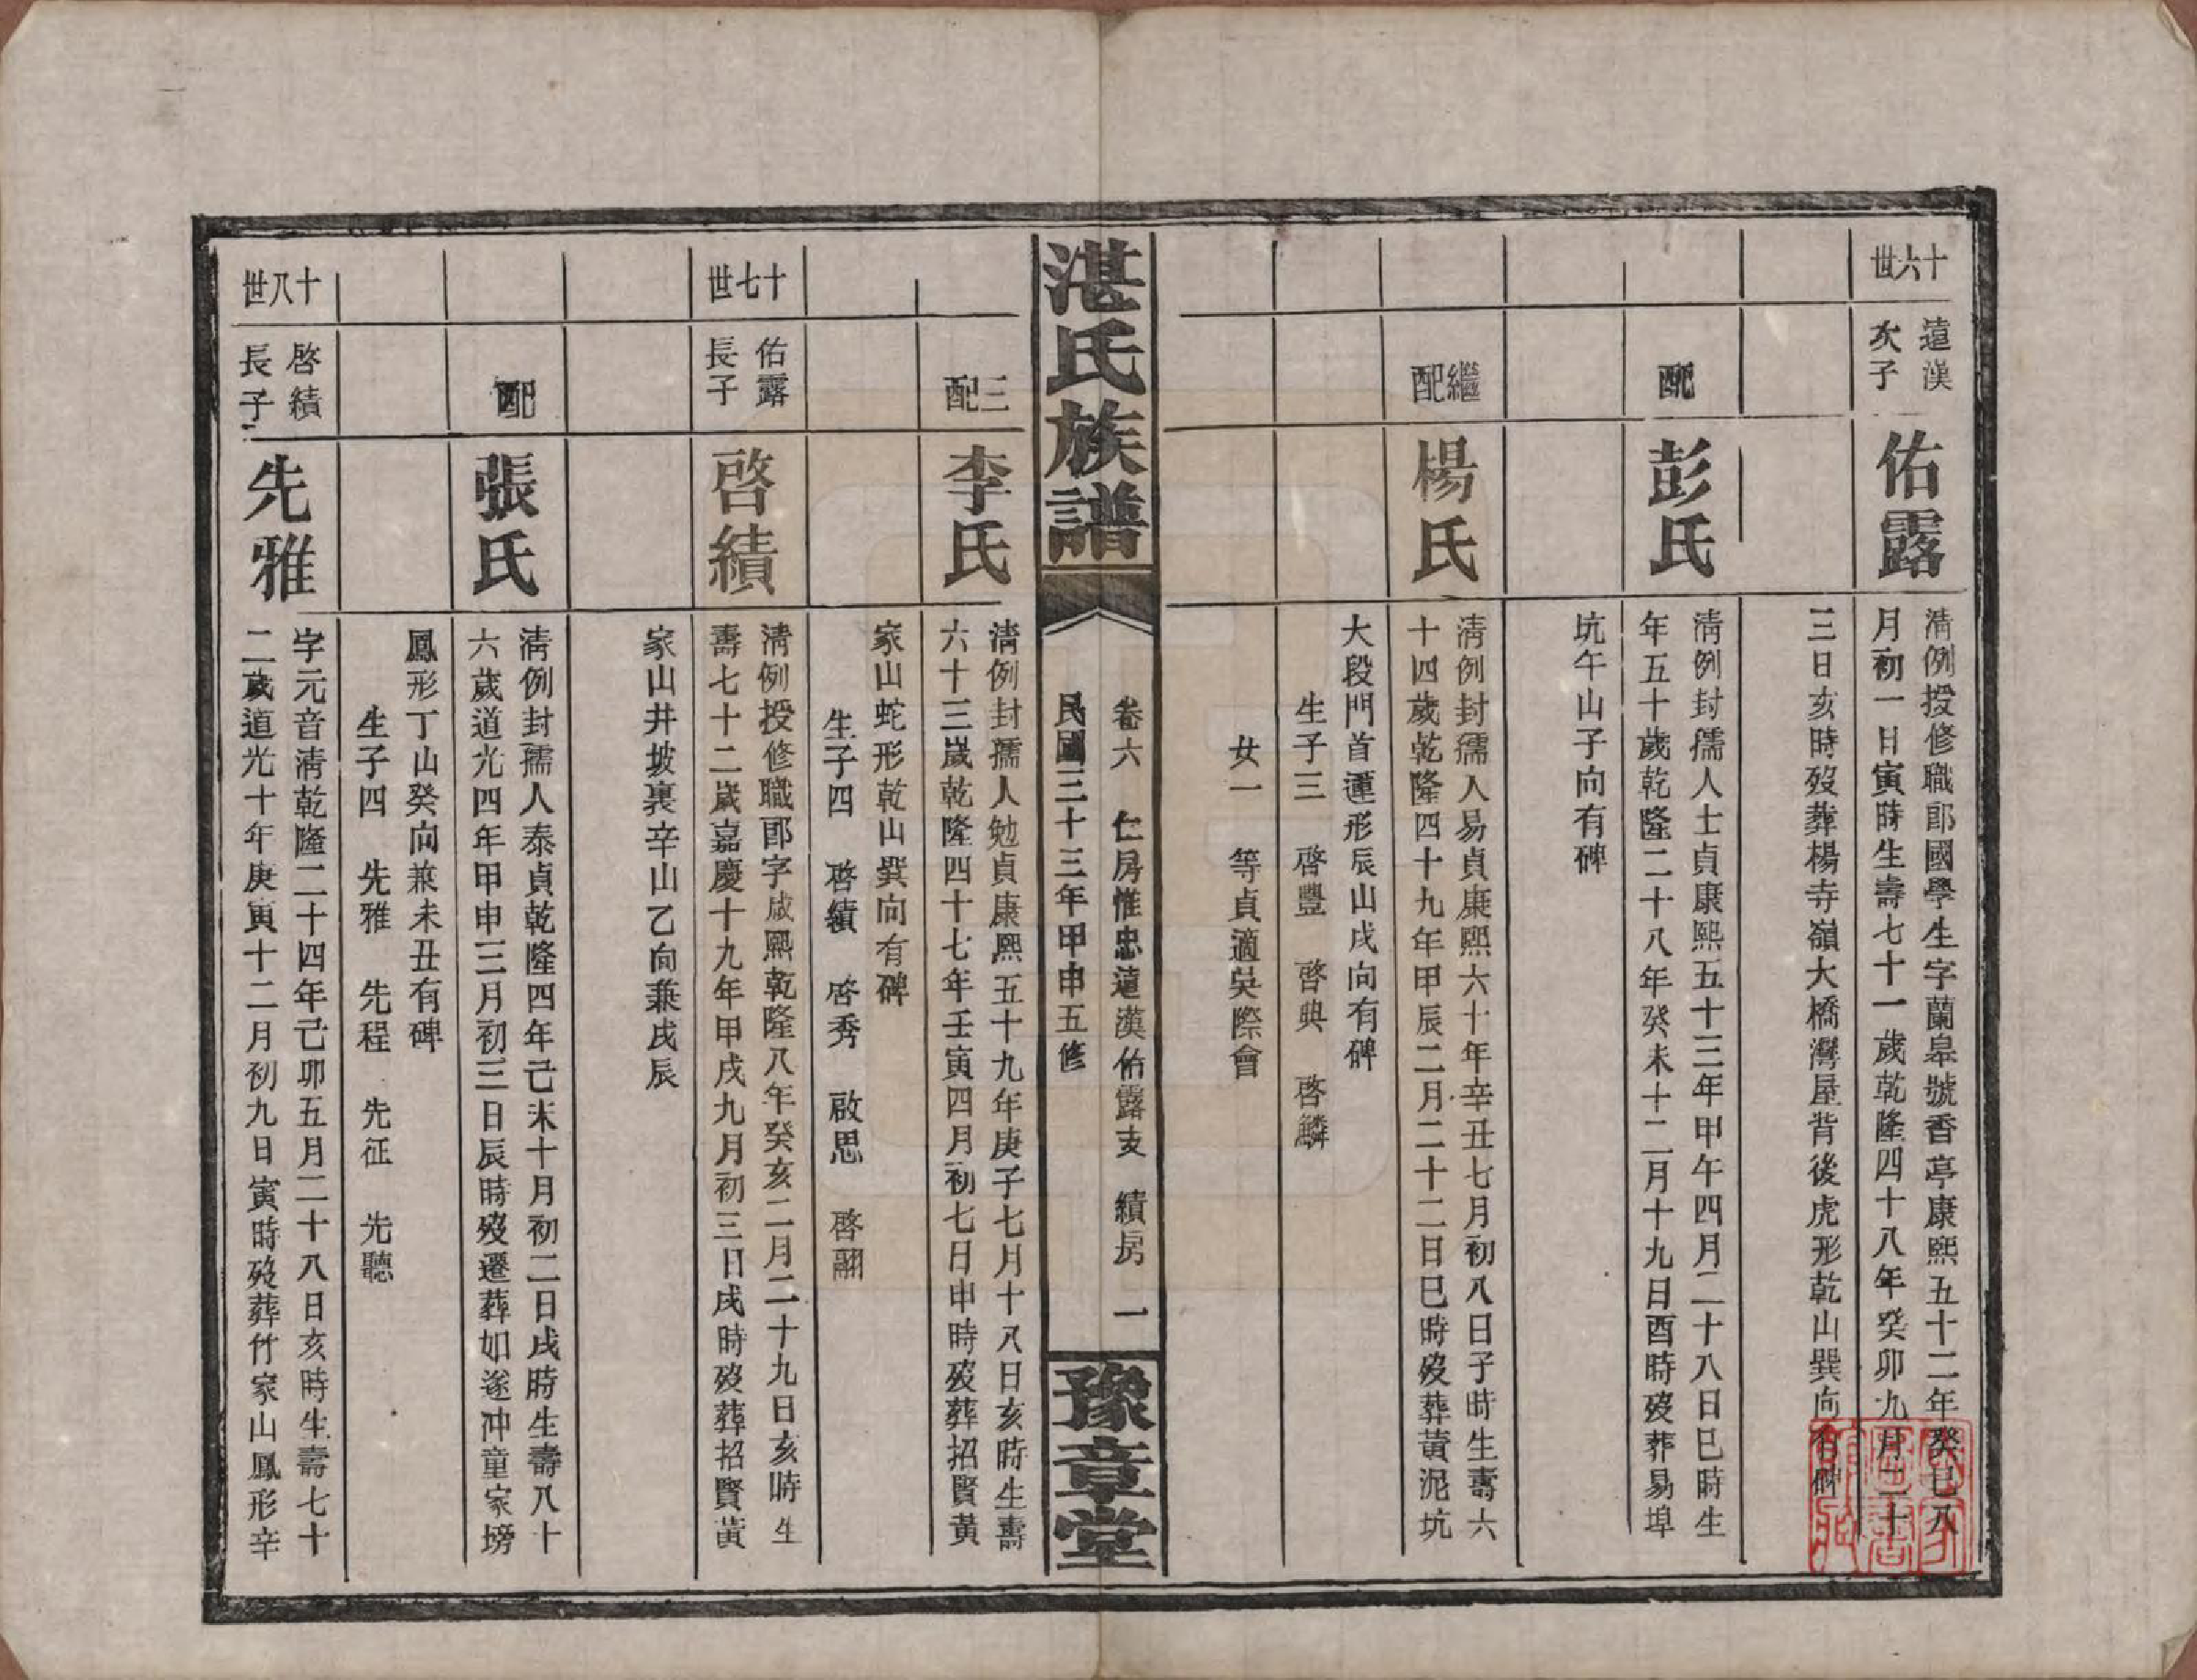 十六世
遠漢
次子
佑露
清例授修職郎國學生字蘭皋號香亭康熙五十二年癸巳八
月初一日寅時生壽七十一歲乾隆四十八年癸卯九月二十
三日亥時歿葬楊寺嶺大橋灣屋背後虎形乾山巽向有碑
配
彭氏
清例封孺人士貞康熙五十三年甲午四月二十八日巳時生
年五十歲乾隆二十八年癸未十二月十九日酉時歿葬易埠
坑午山子向有碑
繼配
楊氏
清例封孺人易貞康熙六十年辛丑七月初八日子時生壽六
十四歲乾隆四十九年甲辰二月二十二日巳時歿葬黃泥坑
大段門首蓮形辰山戌向有碑
生子三 啓豐 啓典 啓麟
女一 等貞適吳際會
湛氏族譜
卷六 仁房惟忠遠漢佑露支 績房 一
民國三十三年甲申五修
豫章堂
三配
李氏
清例封孺人勉貞康熙五十九年庚子七月十八日亥時生壽
六十三歲乾隆四十七年壬寅四月初七日申時歿葬招賢黃
家山蛇形乾山巽向有碑
生子四 啓績 啓秀 啟思 啓翮
十七世
佑露
長子
啓績
清例授修職郎字咸熙乾隆八年癸亥二月二十九日亥時生
壽七十二歲嘉慶十九年甲戌九月初三日戌時歿葬招賢黃
家山井坡裏辛山乙向兼戌辰
配
張氏
清例封孺人泰貞乾隆四年己未十月初二日戌時生壽八十
六歲道光四年甲申三月初三日辰時歿遷葬如遂冲童家塝
鳳形丁山癸向兼未丑有碑
生子四 先雅 先程 先征 先聽
十八世
啓績
長子
先雅
字元音清乾隆二十四年己卯五月二十八日亥時生壽七十
二歲道光十年庚寅十二月初九日寅時歿葬竹家山鳳形辛